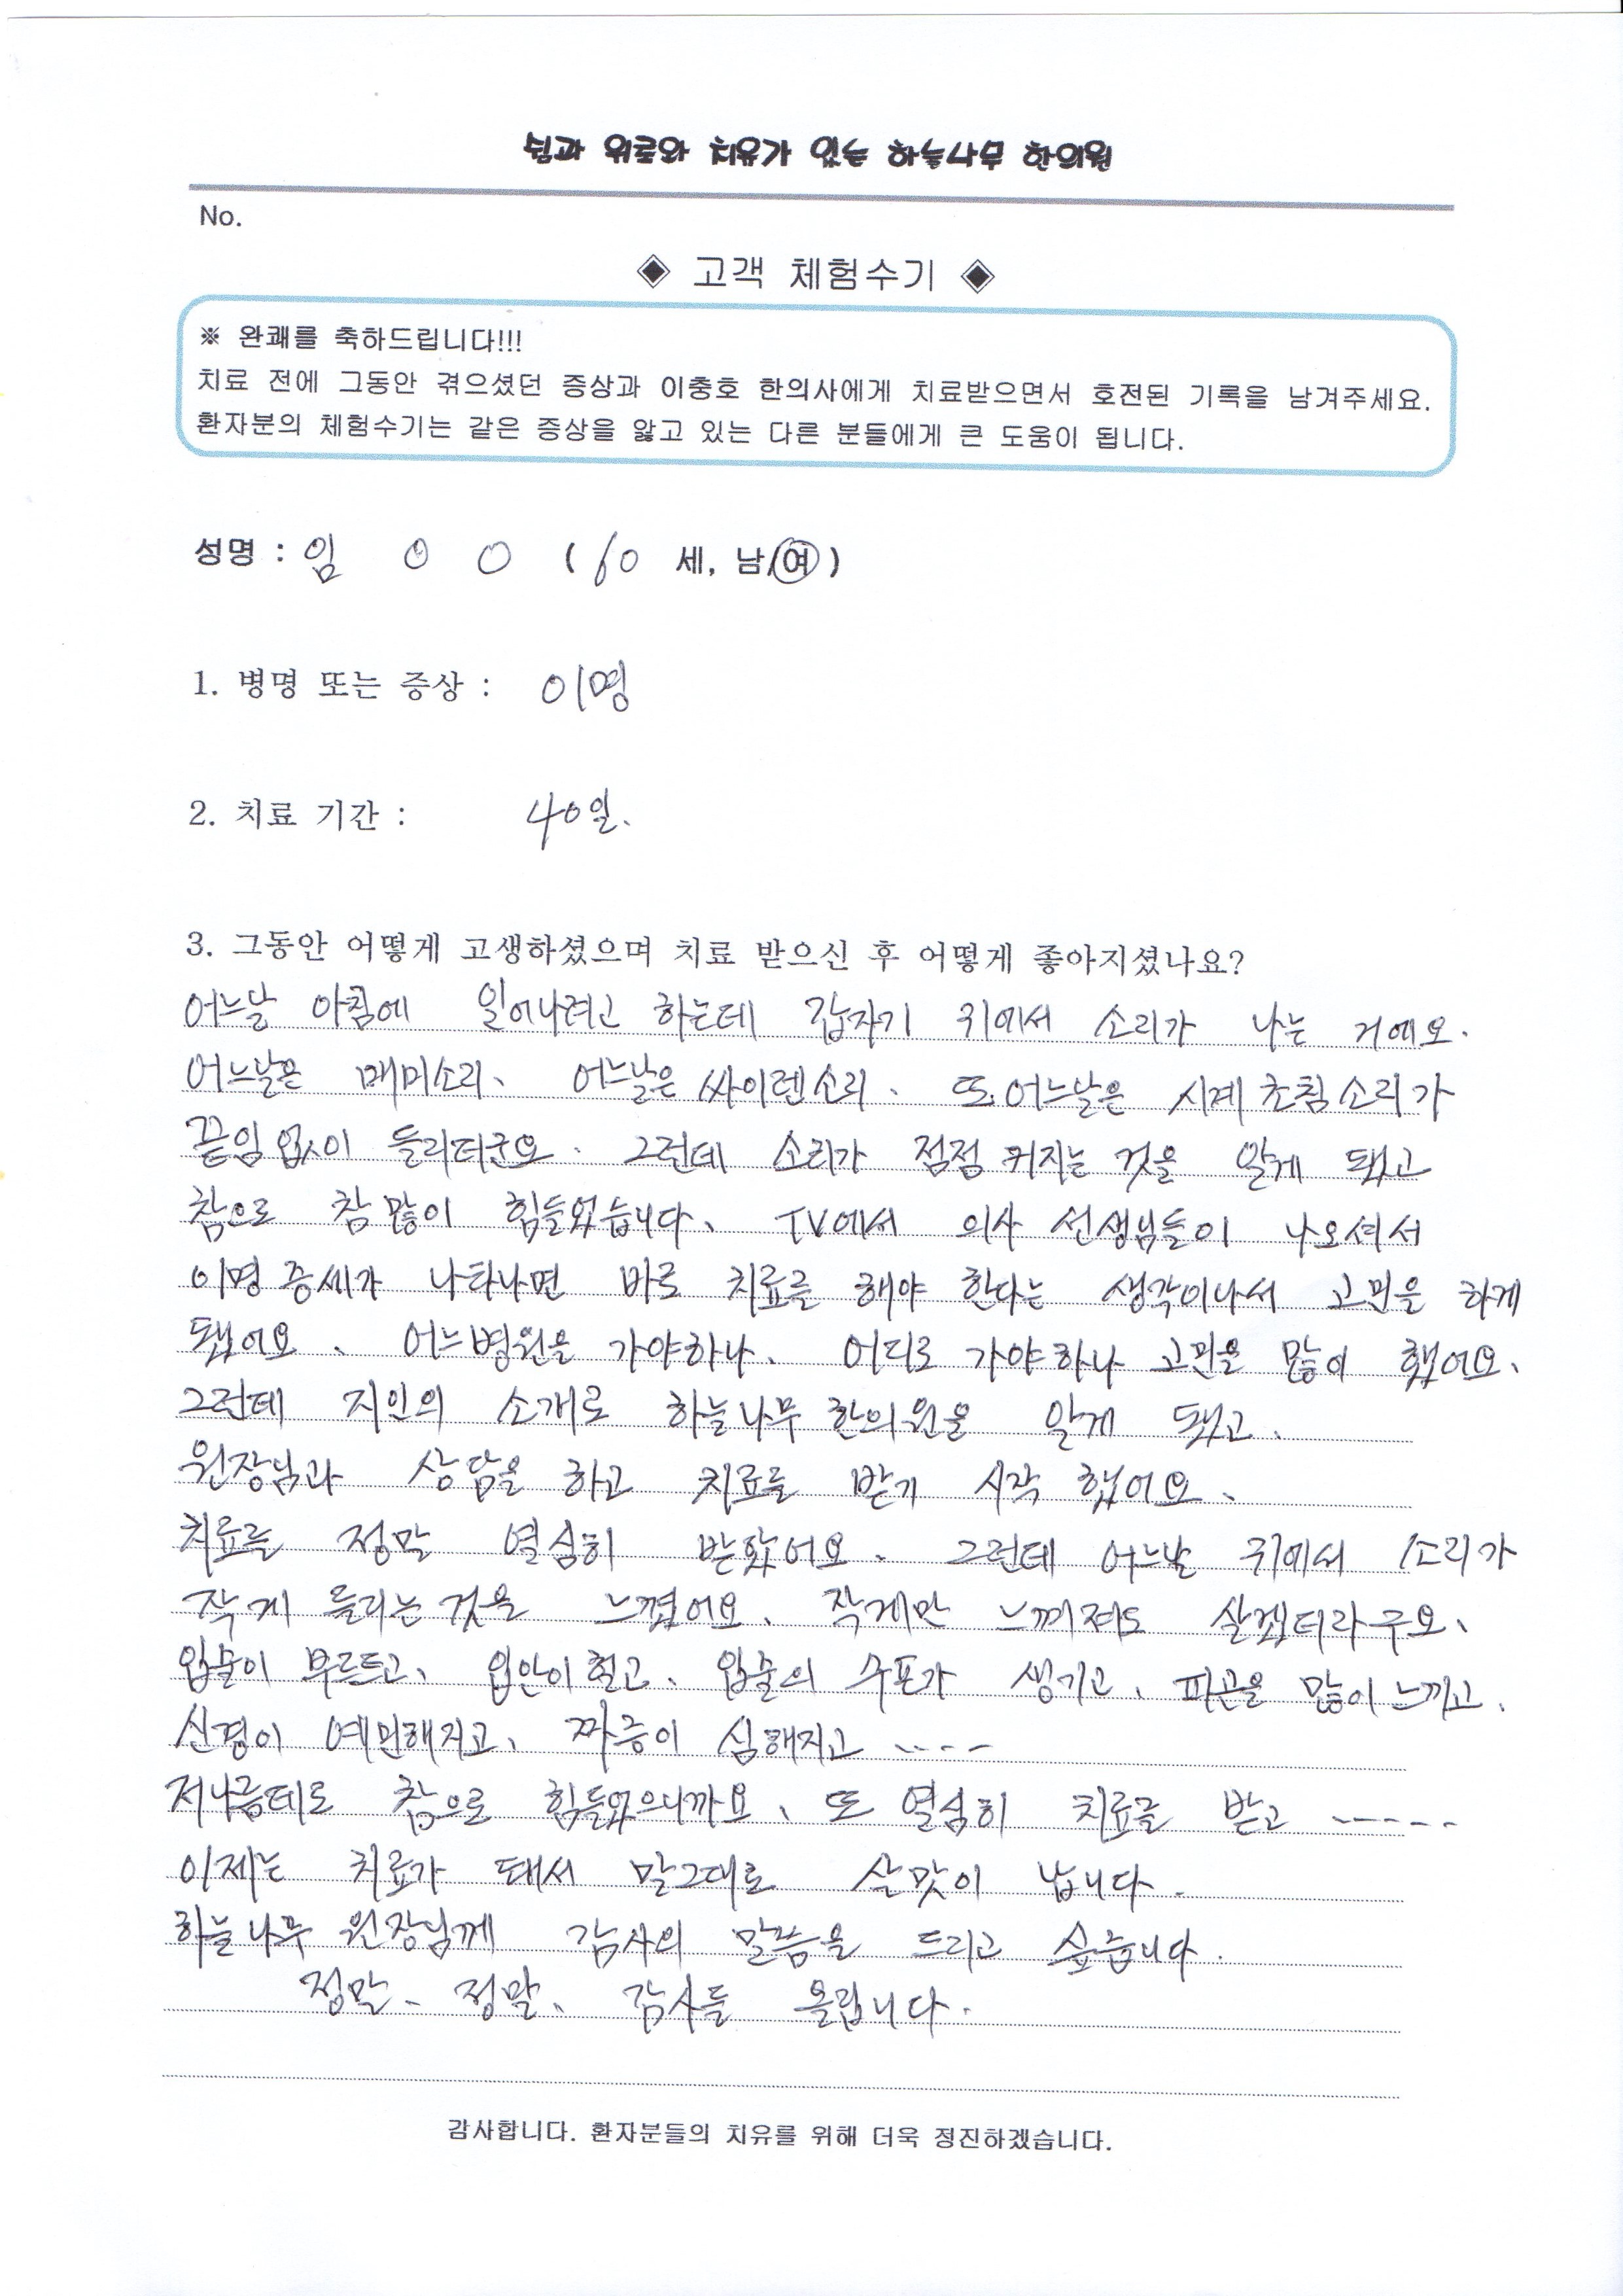 쉼과 위로와 치유가 있는 하늘나무 한의원
No.
◈ 고객 체험수기 ◈
※ 완쾌를 축하드립니다!!!
치료 전에 그동안 겪으셨던 증상과 이충호 한의사에게 치료받으면서 호전된 기록을 남겨주세요.
환자분의 체험수기는 같은 증상을 앓고 있는 다른 분들에게 큰 도움이 됩니다.
성명 : 임 O O ( 60 세, 남/여 )
1. 병명 또는 증상 : 이명
2. 치료 기간 : 40일.
3. 그동안 어떻게 고생하셨으며 치료 받으신 후 어떻게 좋아지셨나요?
어느날 아침에 일어나려고 하는데 갑자기 귀에서 소리가 나는 거예요.
어느날은 매미소리、 어느날은 싸이렌소리、 또 어느날은 시계 초침소리가
끝임없이 들리더군요. 그런데 소리가 점점 커지는 것을 알게 됐고
참으로 참 많이 힘들었습니다、 TV에서 의사 선생님들이 나오셔서
이명 증세가 나타나면 바로 치료를 해야 한다는 생각이나서 고민을 하게
됐어요、 어느병원을 가야하나、 어디로 가야하나 고민을 많이 했어요、
그런데 지인의 소개로 하늘나무 한의원을 알게 됐고、
원장님과 상담을 하고 치료를 받기 시작 했어요、
치료를 정말 열심히 받았어요、 그런데 어느날 귀에서 소리가
작게 들리는 것을 느꼈어요、 작게만 느껴져도 살겠더라구요、
입술이 부르트고、 입안이 헐고、 입술의 수포가 생기고、 피곤을 많이 느끼고、
신경이 예민해지고、 짜증이 심해지고 ----
저나름데로 참으로 힘들었으니까요、 또 열심히 치료를 받고 -----
이제는 치료가 돼서 말그대로 살맛이 납니다.
하늘나무 원장님께 감사의 말씀을 드리고 싶습니다.
정말、 정말、 감사를 올립니다.
감사합니다. 환자분들의 치유를 위해 더욱 정진하겠습니다.